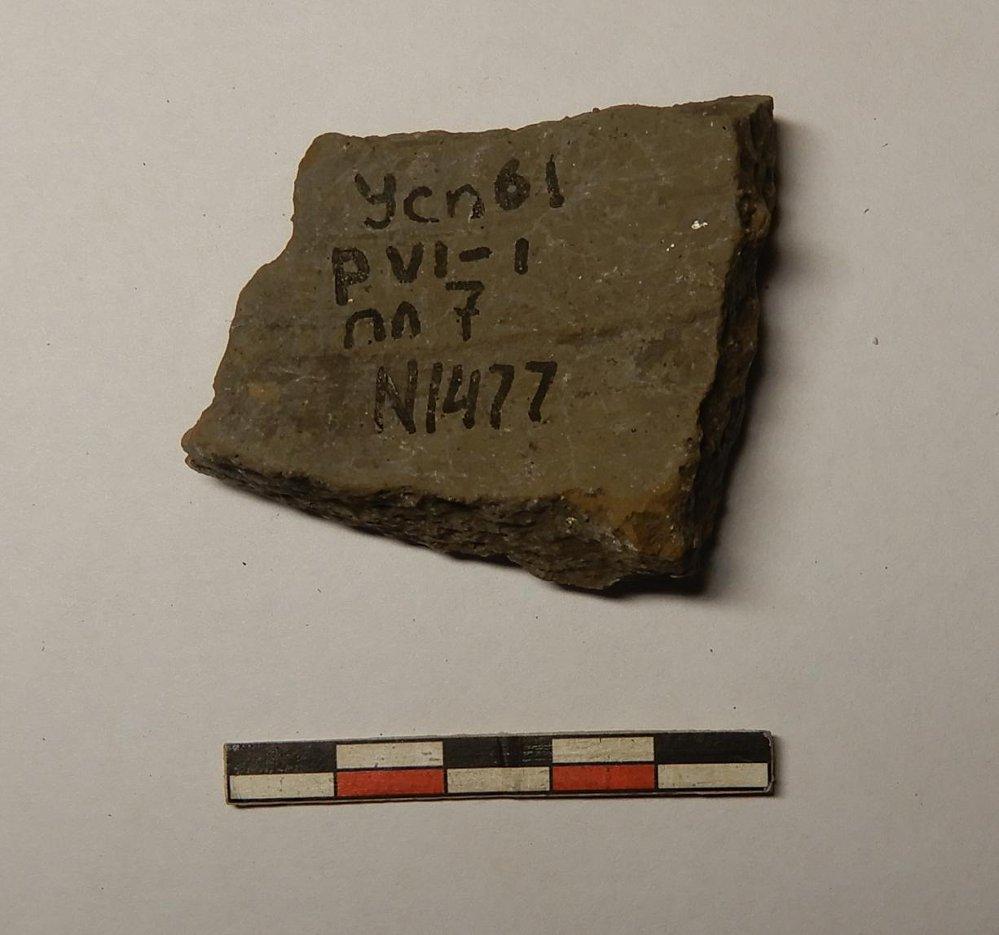 Усп61
Р VI-1
пл 7
N1477